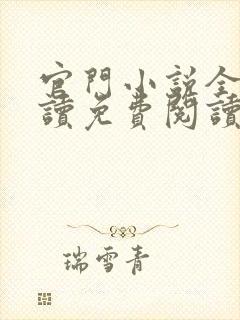 官門小説全
讀免費閱讀
瑞雪青